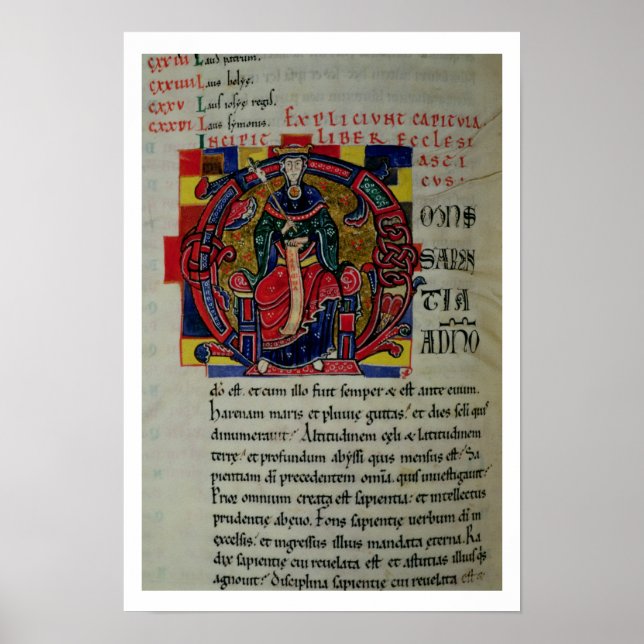 CXXIII Laus patrum.
CXXIIII Laus helyę.
CXXV Laus iosyę regis.
CXXVI Laus symonis. EXPLICIUNT CAPITULA
INCIPIT LIBER ECCLESI
ASTI
CUS:
OMNS
SAPIEN
TIA
ADNO
dō est. et cum illo fuit semper & est ante euum.
harenam maris et pluuię guttas. et dies sęli quis
dinumerauit? Altitudinem cęli & latitudinem
terrę. et profundum abyssi quis mensus est? Sa
pientiam dī precedentem omīa. quis inuestigauit?
Prior omnium creata est sapientia. et intellectus
prudentię ab ęuo. Fons sapientię uerbum dī in
excelsis. et ingressus illius mandata eterna. Ra
dix sapientię cui reuelata est. et astutias illius qs
agnouit? Disciplina sapientię cui reuelata est &